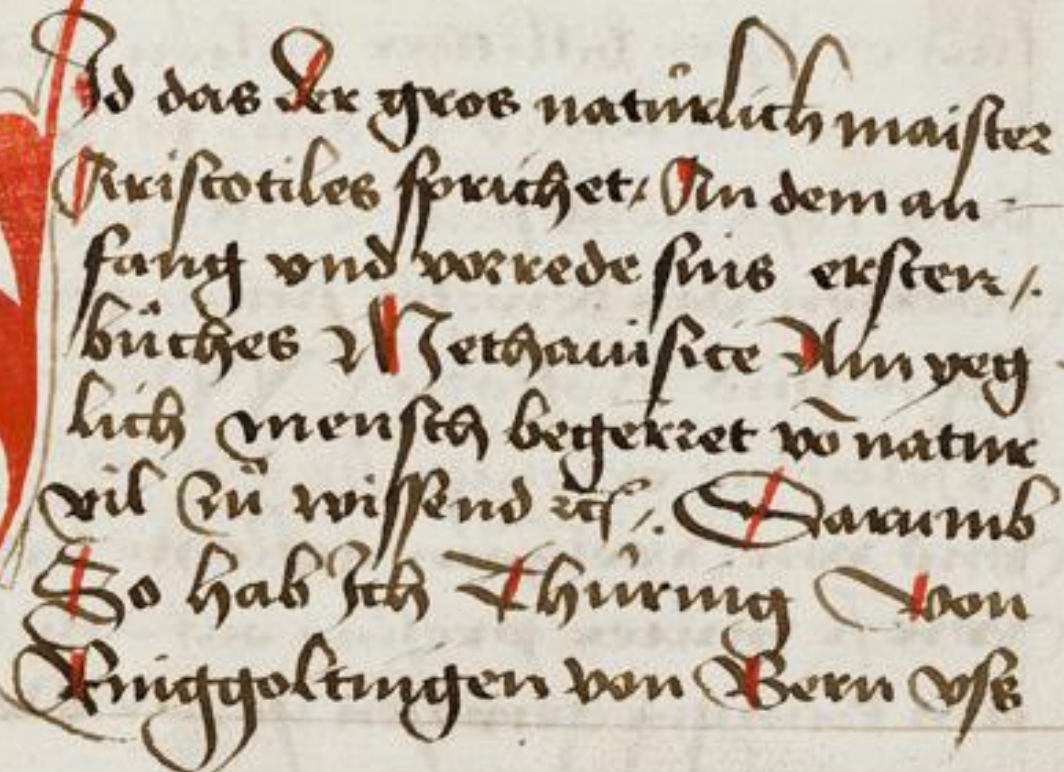 Jd das der gros natúrlich maister
Aristotiles sprichet / An dem an-
fang vnd vorrede sins ersten /.
bůches Methauisice Ain yeg
lich mensch begerret vō natur
vil zů wissend ⁊c /. Darumb
So hab Ich Thúring Von
Ringgoltingen von Bern vss